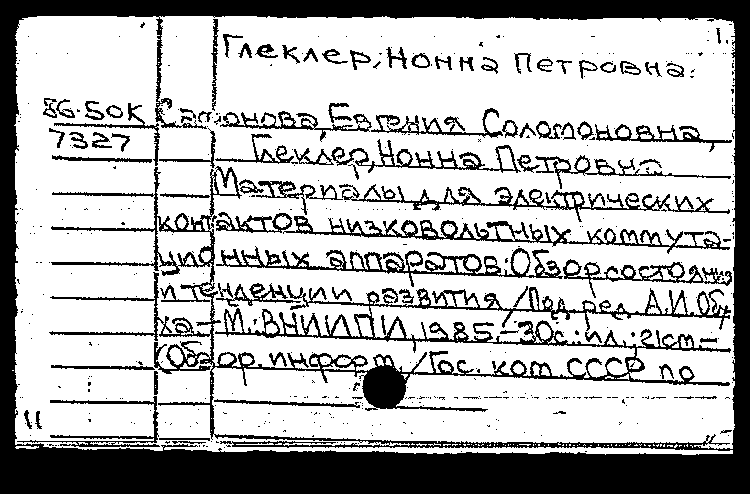 1.
Геклер, Нонна Петровна.
86-50К Сафонова, Евгения Соломоновна,
7327 Геклер, Нонна Петровна.
Материалы для электрических
контактов низковольтных коммута-
ционных аппаратов: Обзор состояния
и тенденции развития / Под ред. А.И.
ха.— М.: ВНИИПИ, 1985.— 30с.: ил.; 21см.—
(Обзор. информ. / Гос. ком. СССР по
11